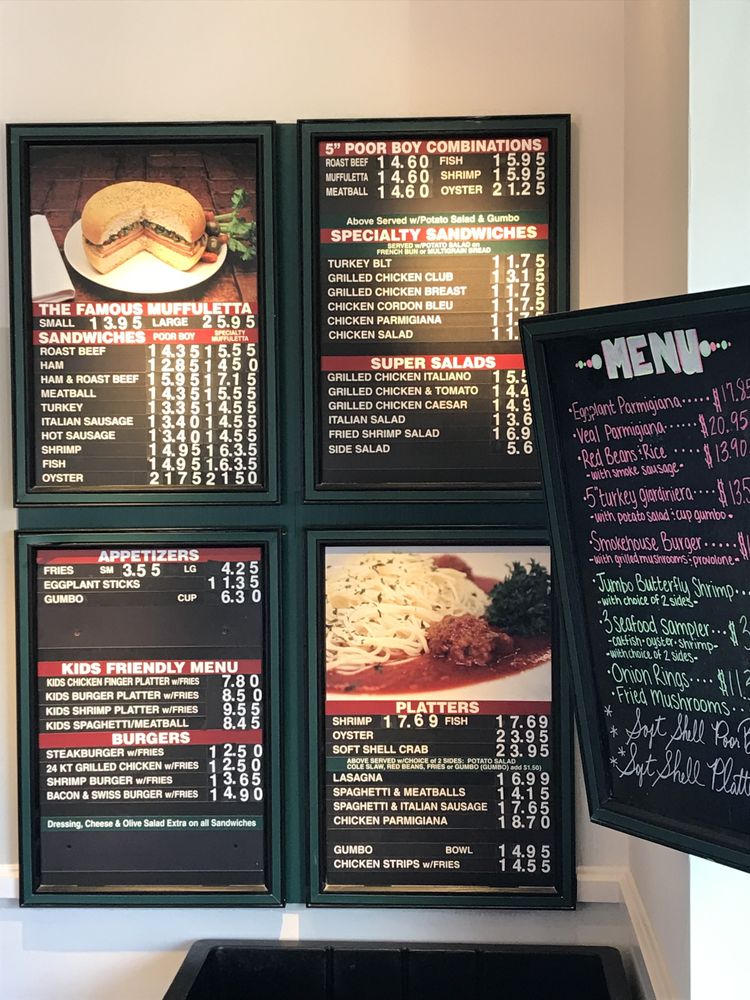 THE FAMOUS MUFFULETTA
SMALL 13.95 LARGE 25.95
SANDWICHES POOR BOY SPECIALTY MUFFULETTA
ROAST BEEF 14.35 15.55
HAM 12.85 14.50
HAM & ROAST BEEF 15.95 17.15
MEATBALL 14.35 15.55
TURKEY 13.35 14.55
ITALIAN SAUSAGE 13.40 14.55
HOT SAUSAGE 13.40 14.55
SHRIMP 14.95 16.35
FISH 14.95 16.35
OYSTER 21.75 21.50
5" POOR BOY COMBINATIONS
ROAST BEEF 14.60 FISH 15.95
MUFFULETTA 14.60 SHRIMP 15.95
MEATBALL 14.60 OYSTER 21.25
Above Served w/Potato Salad & Gumbo
SPECIALTY SANDWICHES
SERVED w/POTATO SALAD on
FRENCH BUN or MULTIGRAIN BREAD
TURKEY BLT 11.75
GRILLED CHICKEN CLUB 13.15
GRILLED CHICKEN BREAST 11.75
CHICKEN CORDON BLEU 11.75
CHICKEN PARMIGIANA 11.7
CHICKEN SALAD 11.
SUPER SALADS
GRILLED CHICKEN ITALIANO 15.5
GRILLED CHICKEN & TOMATO 14.4
GRILLED CHICKEN CAESAR 14.9
ITALIAN SALAD 13.6
FRIED SHRIMP SALAD 16.9
SIDE SALAD 5.6
APPETIZERS
FRIES SM 3.55 LG 4.25
EGGPLANT STICKS 11.35
GUMBO CUP 6.30
KIDS FRIENDLY MENU
KIDS CHICKEN FINGER PLATTER w/FRIES 7.80
KIDS BURGER PLATTER w/FRIES 8.50
KIDS SHRIMP PLATTER w/FRIES 9.55
KIDS SPAGHETTI/MEATBALL 8.45
BURGERS
STEAKBURGER w/FRIES 12.50
24 KT GRILLED CHICKEN w/FRIES 12.50
SHRIMP BURGER w/FRIES 13.65
BACON & SWISS BURGER w/FRIES 14.90
Dressing, Cheese & Olive Salad Extra on all Sandwiches
PLATTERS
SHRIMP 17.69 FISH 17.69
OYSTER 23.95
SOFT SHELL CRAB 23.95
ABOVE SERVED w/CHOICE of 2 SIDES: POTATO SALAD
COLE SLAW, RED BEANS, FRIES or GUMBO (GUMBO) add $1.50)
LASAGNA 16.99
SPAGHETTI & MEATBALLS 14.15
SPAGHETTI & ITALIAN SAUSAGE 17.65
CHICKEN PARMIGIANA 18.70
GUMBO BOWL 14.95
CHICKEN STRIPS w/FRIES 14.55
MENU
•Eggplant Parmigiana..... $17.85
•Veal Parmigiana..... $20.95
Red Beans & Rice $13.90
-with smoke sausage-
•5" turkey giardiniera.... $13.5
-with potato salad & cup gumbo-
Smokehouse Burger.... $1
-with grilled mushrooms & provolone-
Jumbo Butterfly Shrimp..
-with choice of 2 sides-
3 Seafood Sampler... $2
-catfish•oyster•shrimp-
-with choice of 2 sides-
•Onion Rings.... $11.2
•Fried Mushrooms..
* Soft Shell Poor B
* Soft Shell Platte